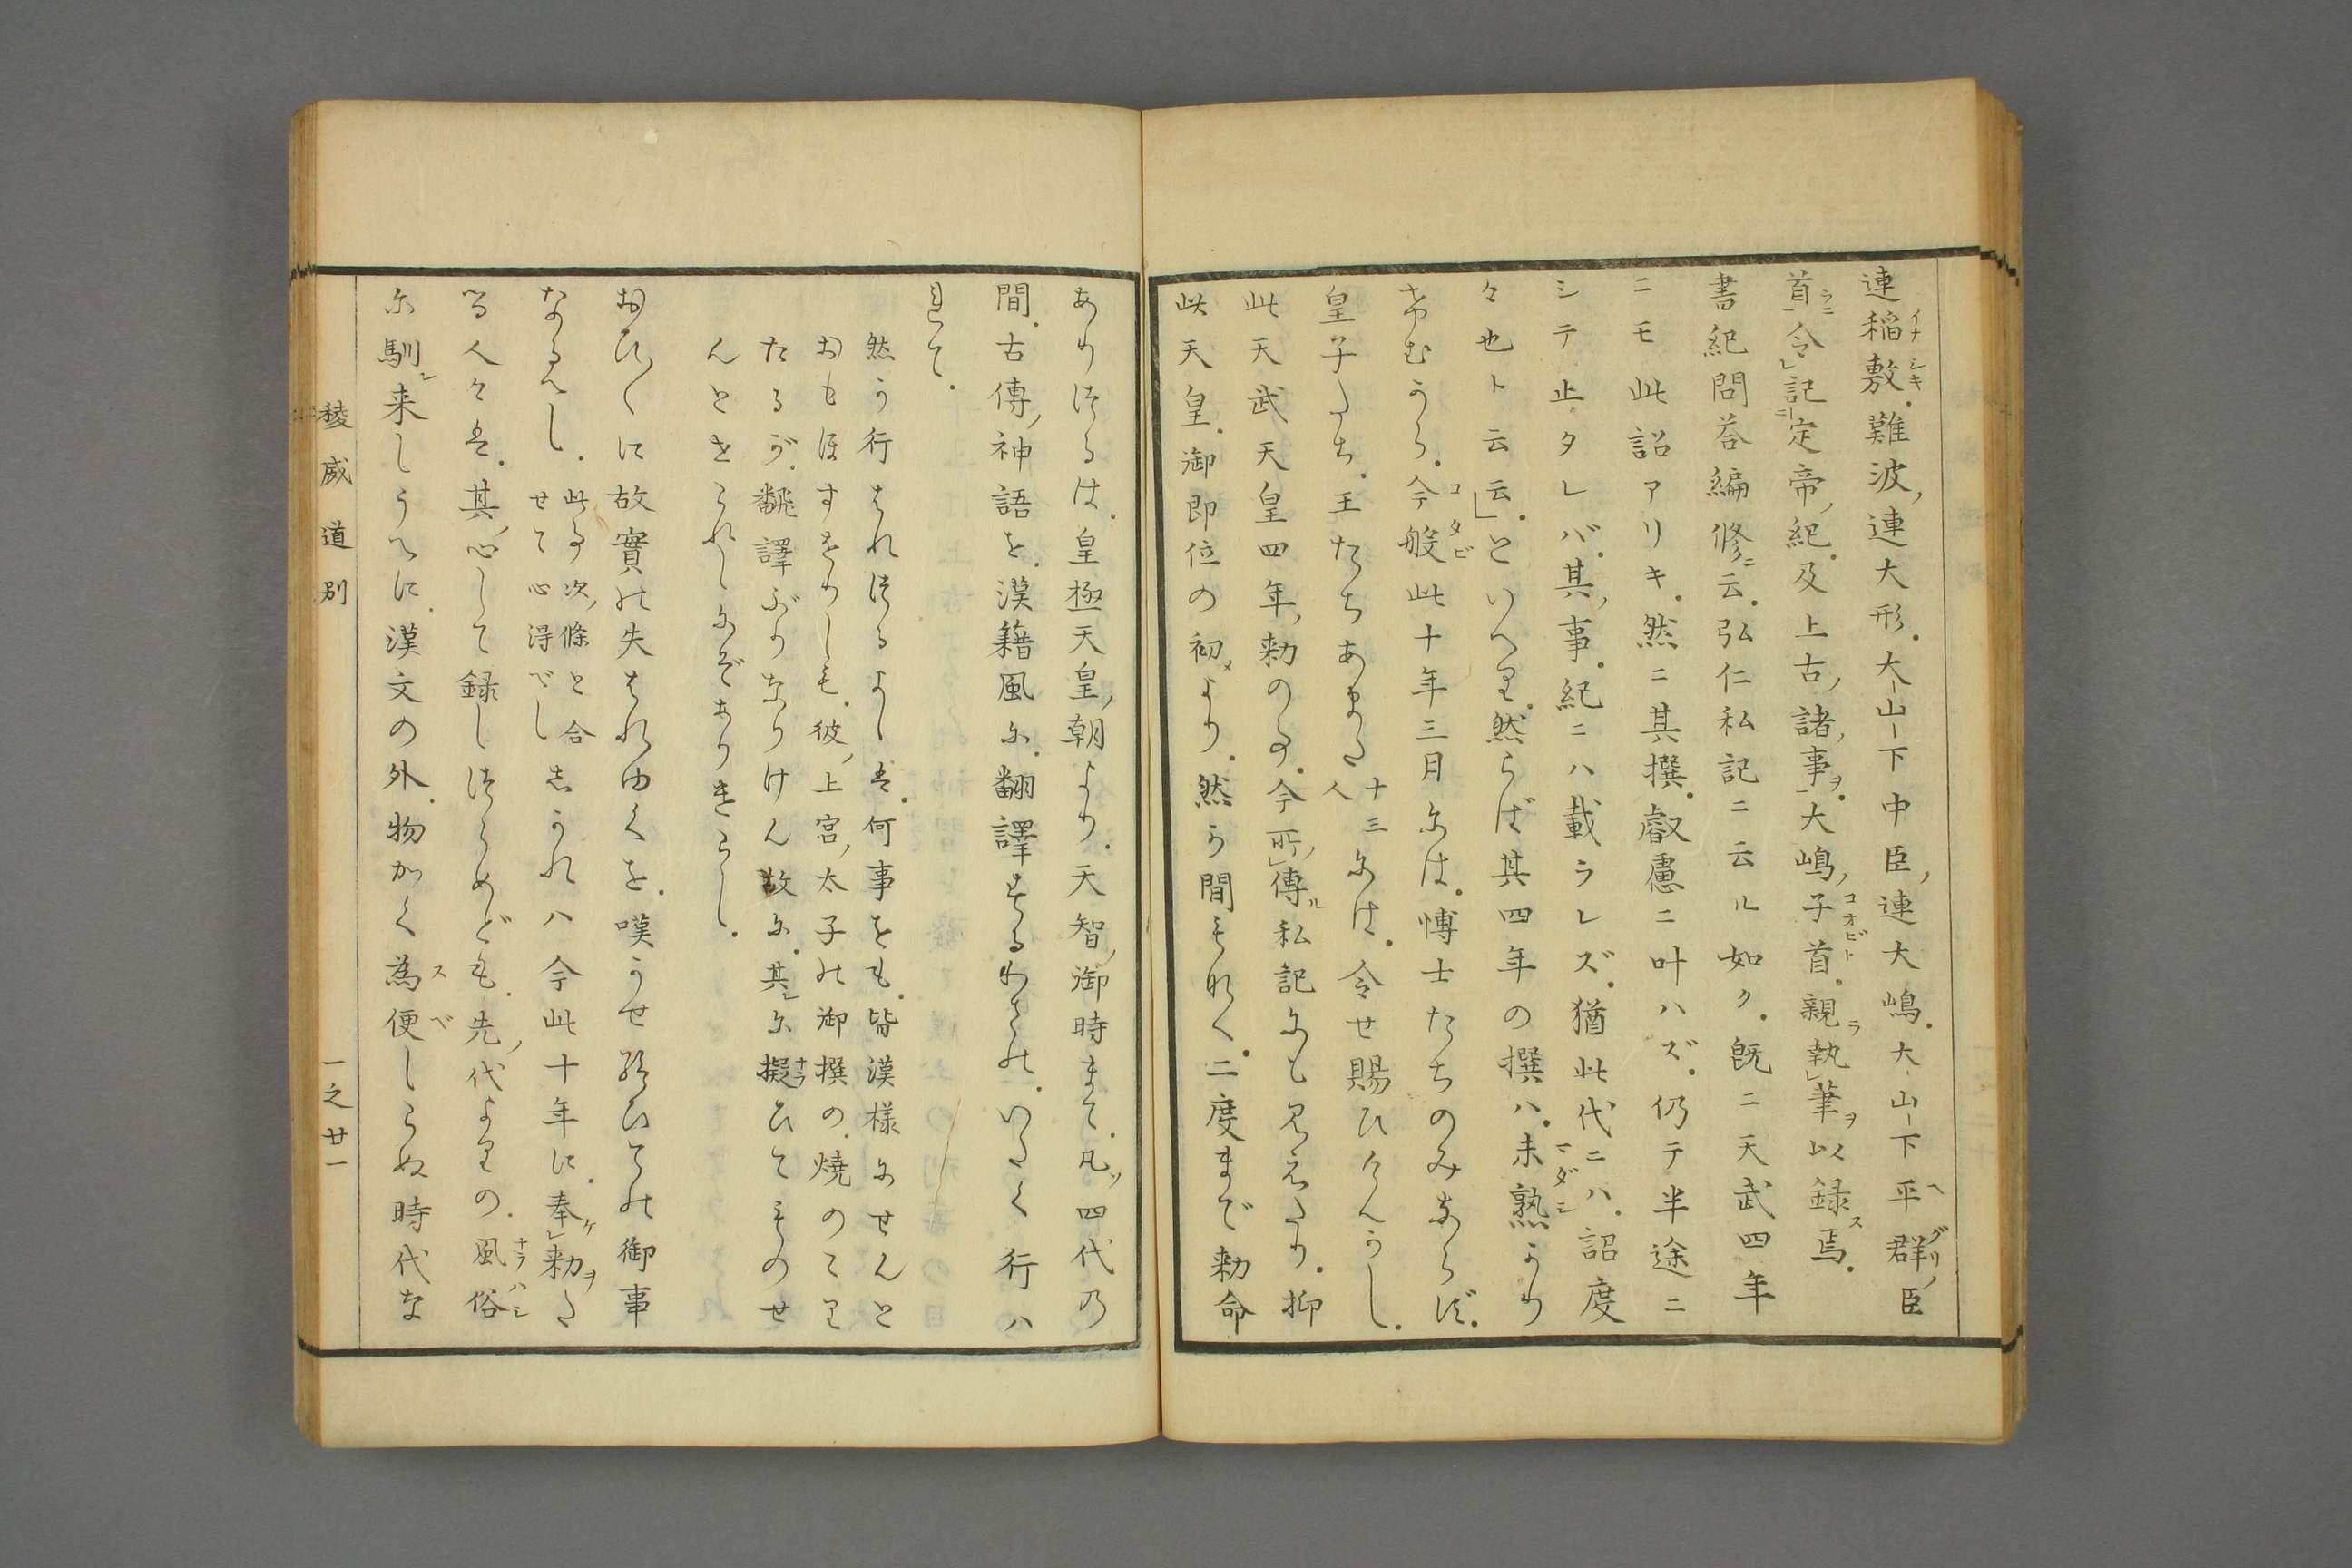 連稲敷。難波ノ連大形。大山下中臣ノ連大嶋。大山下平群ノ臣
首。令記定帝ノ紀。及上古ノ諸ノ事ヲ。大嶋ノ子首。親執筆ヲ以録焉。
書紀問荅編修ニ云。弘仁私記ニ云ル如ク。既ニ天武四年
ニモ此詔アリキ。然ニ其撰。叡慮ニ叶ハズ。仍テ半途ニ
シテ止タレバ。其ノ事。紀ニハ載ラレズ。猶此代ニハ。詔度
々也ト云云」。といへり。然らば其四年の撰ハ。未熟かり
けむから。今般此十年三月には。博士たちのみならず。
皇子たち。王たちあまた十三人には。令せ賜ひけんかし。
此天武天皇四年ノ勅の事。今ノ所傳ル私記にも見えたり。抑
此天皇。御即位の初メより。然る間もなく。二度まで勅命
ありつるは。皇極天皇ノ朝より。天智ノ御時まで。凡ソ四代乃
間。古傳ノ神語を。漢籍風に。翻譯するわざの。いたく行ハ
れて。
然か行はれつるよしは。何事をも。皆漢様にせんと
おもほすをりしも。彼ノ上宮ノ太子の御撰の。焼のこり
たるが。翻譯ぶりなりけん故に。其レに擬ひてものせ
んとせられしにぞありきらし。
おひ〱に故實の失はれゆくを。嘆かせ給ひての御事
なるべし。此事次ノ條と合せて心得べし しかれハ今此十年に。奉ケ勅ヲた
る人々は。其ノ心して録しつらめども。先ノ代よりの。風俗
に馴レ来しうへに。漢文の外。物かく為便しらぬ時代な
稜威道別
一之廿一